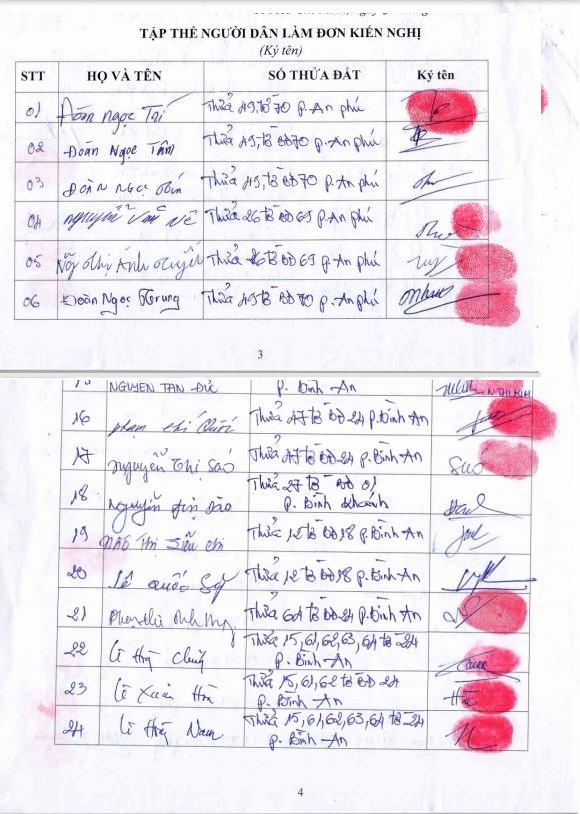 TẬP THỂ NGƯỜI DÂN LÀM ĐƠN KIẾN NGHỊ
(Ký tên)
STT HỌ VÀ TÊN SỐ THỬA ĐẤT Ký tên
01 Đoàn Ngọc Trí Thửa 49, tờ 70 p. An phú
02 Đoàn Ngọc Tâm Thửa 49, tờ BĐ 70 p. An phú
03 ĐOÀN NGỌC Thửa 49, tờ BĐ 70 p. An phú
04 Nguyễn Văn Vẽ Thửa 26 tờ BĐ 69 p. An phú
05 Thị Ánh Tuyết Thửa 26 tờ BĐ 69 p. An phú
06 Đoàn Ngọc Trung Thửa 49 tờ BĐ 70 p. An phú
3
NGUYEN TAN ĐUC p. Bình An
16 phạm chí Thửa 47 tờ BĐ 24 p. Bình An
17 nguyễn Thị Sáo Thửa 47 tờ BĐ 24 p. Bình An Sáo
18 Nguyễn Đào Thửa 27 tờ BĐ 01
p. Bình Khánh
19 Thị Thửa 12 tờ BĐ 18 p. Bình An
20 Lê Quốc Thửa 12 tờ BĐ 18 p. Bình An
21 Thửa 64 tờ BĐ 24 p. Bình An
22 Lê Thửa 15, 61, 62, 63, 64 tờ 24
p. Bình An
23 Lê Xuân Hòa Thửa 15, 61, 62 tờ BĐ 24
p. Bình An
24 Lê Nam Thửa 15, 61, 62, 63, 64 tờ 24
p. Bình An
4